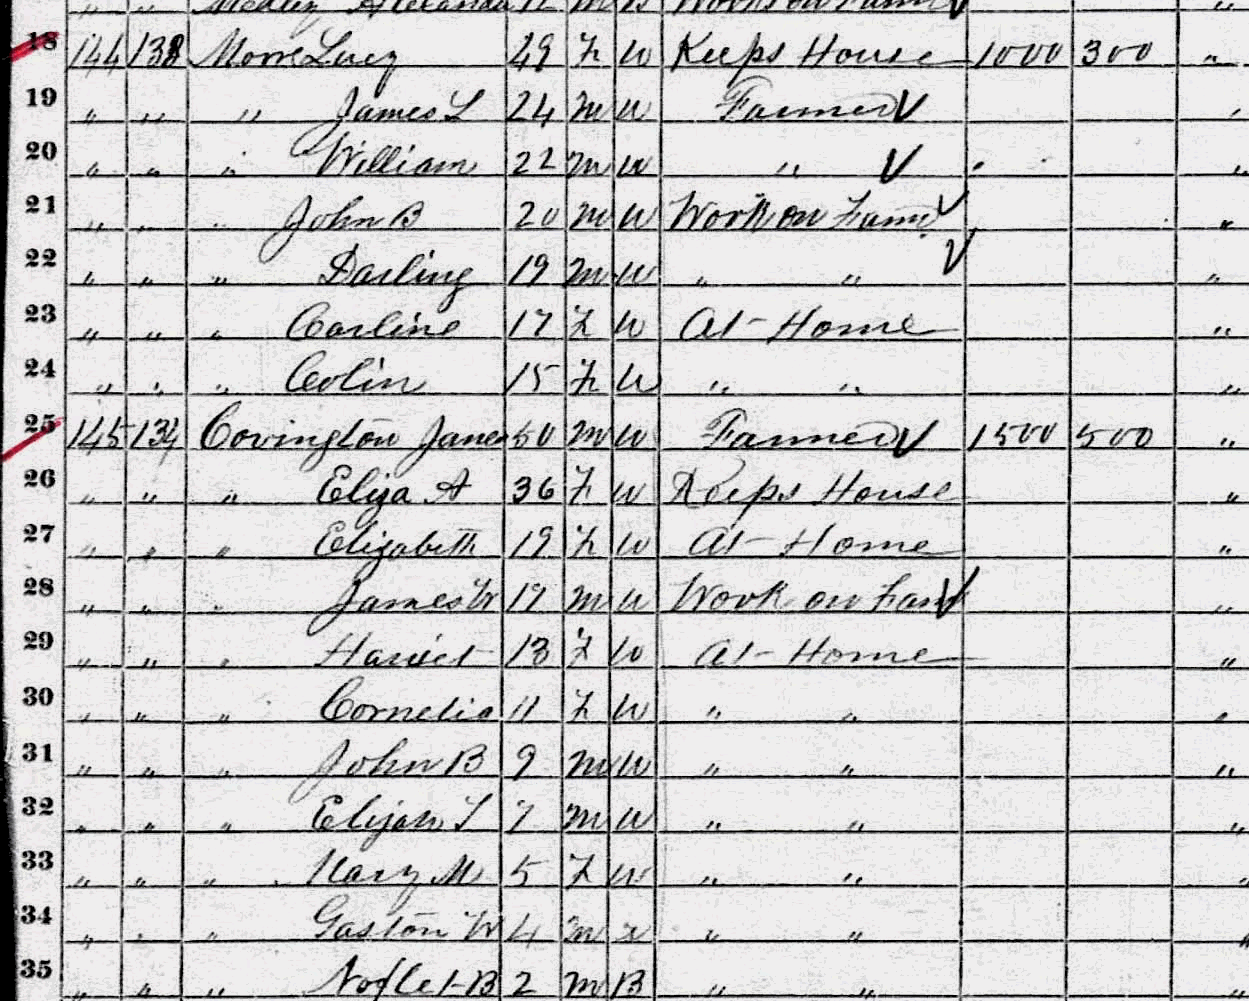 Works on Farm
18 144 138 Morre Lucy 49 F W Keeps House 1000 300 "
19 " " " James L 24 M W Farmer "
20 " " " William 22 M W " "
21 " " " John B 20 M W Work on Farm "
22 " " " Darling 19 M W " " "
23 " " " Carline 17 F W At Home "
24 " " " Colin 15 F W " " "
25 145 134 Covington James 50 M W Farmer 1500 500 "
26 " " " Eliza A 36 F W Keeps House "
27 " " " Elizabeth 19 F W At Home "
28 " " " James W 17 M W Work on Farm "
29 " " " Hariet 13 F W At Home "
30 " " " Cornelia 11 F W " " "
31 " " " John B 9 M W " " "
32 " " " Elijah T 7 M W " " "
33 " " " Mary M 5 F W " " "
34 " " " Gaston W 4 M " " "
35 " " " Noflet B 2 M B " " "